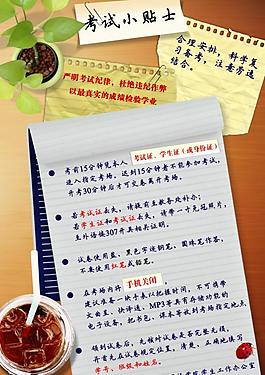 考试小贴士
合理安排，科学复
习备考，注意劳逸
结合。
严明考试纪律，杜绝违纪作弊
以最真实的成绩检验学业
考试证、学生证（或身份证）
考前15分钟凭本人
进入指定考场，迟到15分钟者不能参加考试，
开考30分钟后才可交卷离开考场。
若考试证丢失，请提前至教务处补办；
若学生证和考试证丢失，请带一寸免冠照片，
至外语楼307开具相关证明。
试卷使用蓝、黑色字迹钢笔、圆珠笔作答，
不要使用红笔或铅笔。
在考场内请 手机关闭，
建议准备一块手表以把握时间，不可携带
文曲星、快译通、MP3等具有存储功能的
电子设备，把书包、课本等放到考场指定地点
领到试卷后，先核对试卷是否完整无损，
并首先在试卷规定位置，清楚、正确地填写
学号、班级和姓名。
学生工作办公室